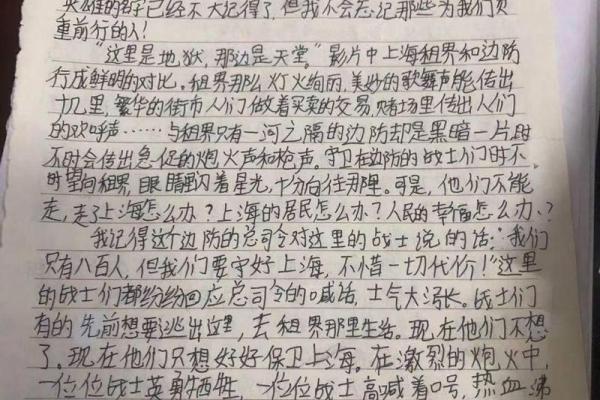 英雄的名字已经不大记得了,但我不会忘记那些为我们负
重前行的人!
"这里是地狱,那边是天堂。"影片中上海租界和边防
行成鲜明的对比。租界那么灯火绚丽,美妙的歌舞声能传出
十几里,繁华的街市人们做着买卖的交易,赌场里传出人们
的欢呼声……与租界只有一河之隔的边防却是黑暗一片,时
不时会传出急促的炮火声和枪声。守卫在边防的战士们时不
时望向租界,眼睛里闪着星光,十分向往那里。可是,他们不能
走,走了上海怎么办?上海的居民怎么办?人民的幸福怎么办?
我记得这个边防的总司令对这里的战士说的话:"我们
只有八百人,但我们要守好上海,不惜一切代价!"这里
的战士们都纷纷回应总司令的喊话,士气大涨。战士们
有的先前想要逃出这里,去租界那里生活。现在他们不想
了。现在他们只想好好保卫上海。在激烈的炮火中,
一位位战士英勇牺牲,一位位战士高喊着口号,热血沸